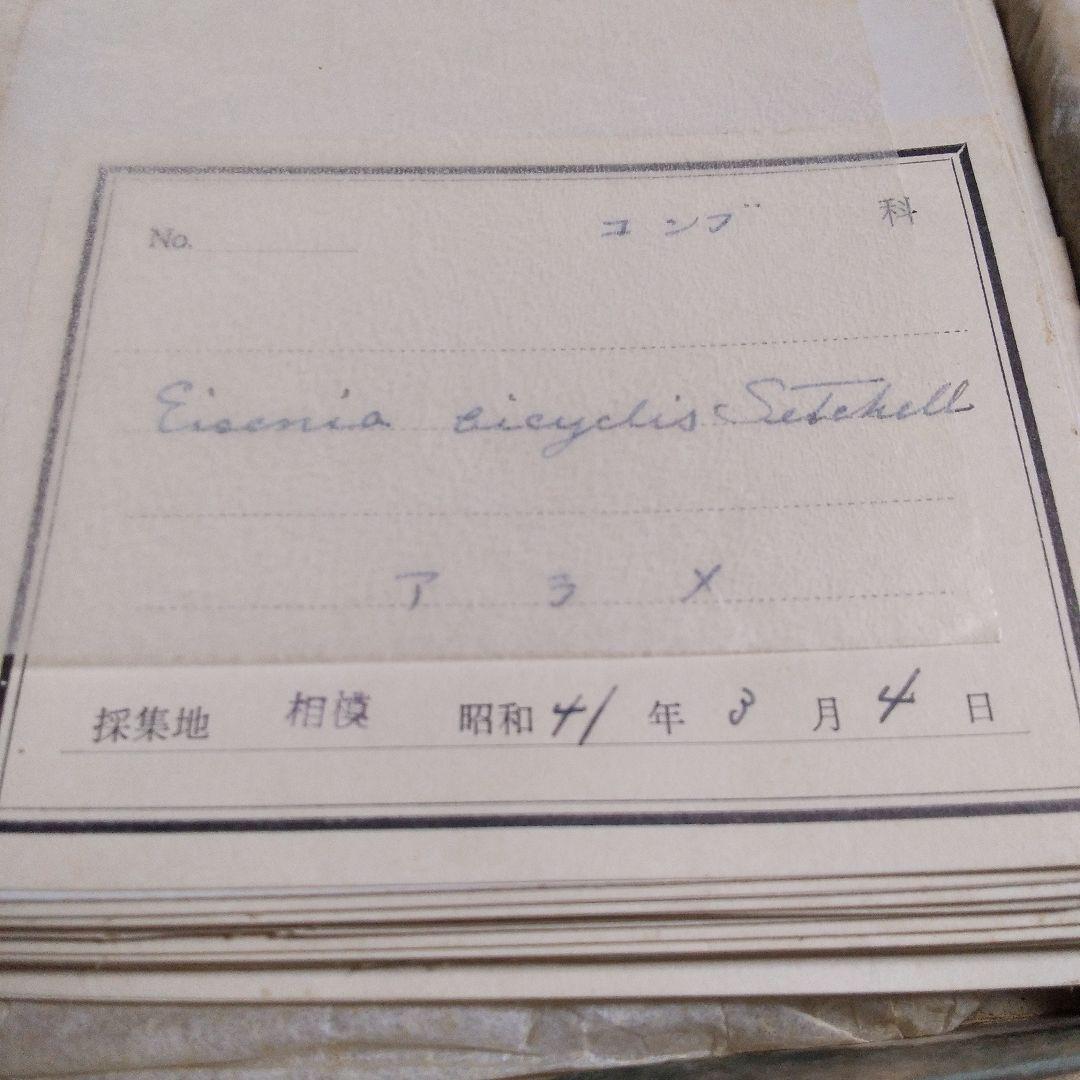 No. コンブ 科
Eisenia bicyclis Setchell
アラメ
採集地 相模 昭和41年3月4日